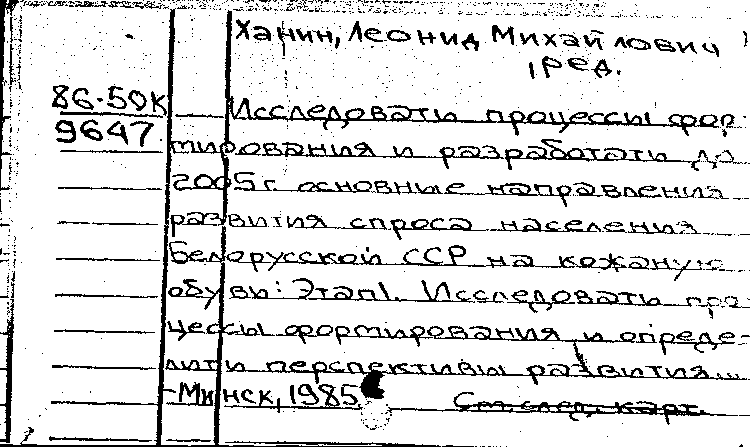 Ханин, Леонид Михайлович
, ред.
86-50К
9647
Исследовать процессы фор-
мирования и разработать до
2005 г. основные направления
развития спроса населения
Белорусской ССР на кожаную
обувь: Этап 1. Исследовать про-
цессы формирования и опреде-
лить перспективы развития...
- Минск, 1985
См. след. карт.